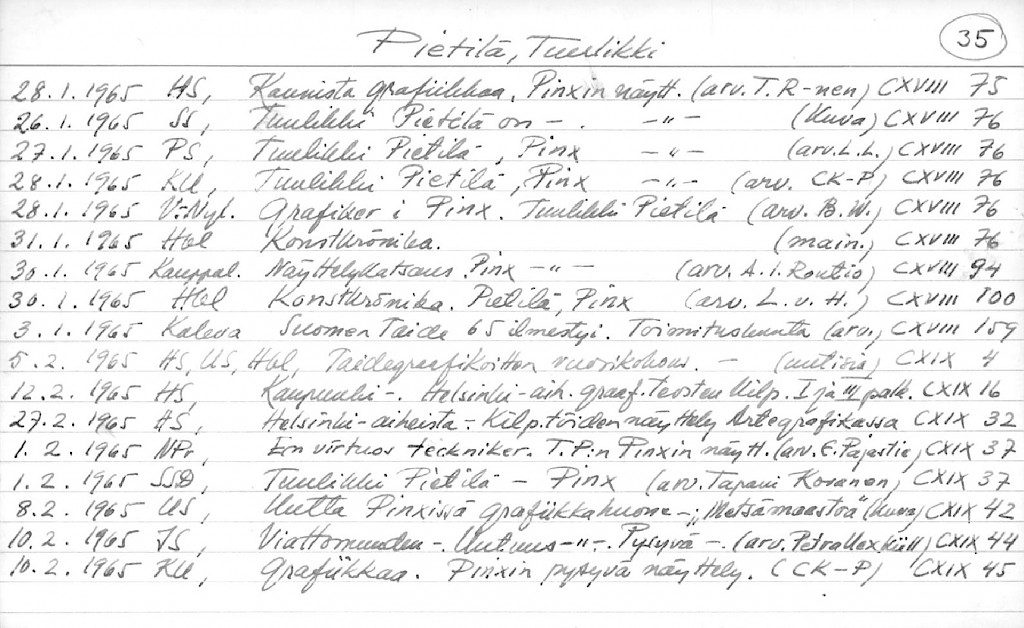 Pietilä, Tuulikki
35
28.1.1965 HS, Kaunista grafiikkaa, Pinxin näytt. (arv. T. R-nen) CXVIII 75
26.1.1965 SS, Tuulikki Pietilä on - . -"- (Kuva) CXVIII 76
27.1.1965 PS, Tuulikki Pietilä, Pinx -"- (arv. L.L.) CXVIII 76
28.1.1965 KU, Tuulikki Pietilä, Pinx -"- (arv. CK-P) CXVIII 76
28.1.1965 V:Nyl. Grafiker i Pinx. Tuulikki Pietilä (arv. B.W.) CXVIII 76
31.1.1965 Hbl Konstkrönika. (main.) CXVIII 76
30.1.1965 Kauppal. Näyttelykatsaus, Pinx -"- (arv. A.I. Routio) CXVIII 94
30.1.1965 Hbl Konstkrönika. Pietilä, Pinx (arv. L.v.H.) CXVIII 100
3.1.1965 Kaleva Suomen Taide 65 ilmestyi. Toimituskunta (arv.) CXVIII 159
5.2.1965 HS, US, Hbl, Taidegraafikoitten vuosikokous. - (uutisia) CXIX 4
12.2.1965 HS, Kaupunki -. Helsinki-aih. graaf. teosten kilp. I ja III palk. CXIX 16
27.2.1965 HS, Helsinki-aiheista - Kilp.töiden näyttely Artegrafikassa CXIX 32
1.2.1965 NPr, En virtuos teckniker. T.P:n Pinxin näytt. (arv. E. Pajastie) CXIX 37
1.2.1965 SSD, Tuulikki Pietilä - Pinx (arv. Tapani Kovanen) CXIX 37
8.2.1965 US, Uutta Pinxissä grafiikkahuone -; "Metsämaastoa" (kuva) CXIX 42
10.2.1965 IS, Viattomuuden -. Uutuus -"-. Pysyvä -. (arv. Petra Uexküll) CXIX 44
10.2.1965 KU, Grafiikkaa. Pinxin pysyvä näyttely. (CK-P) CXIX 45